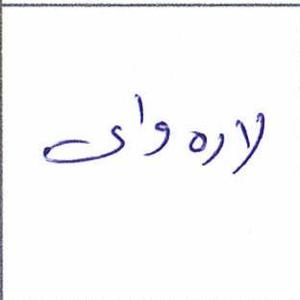 لاره وای